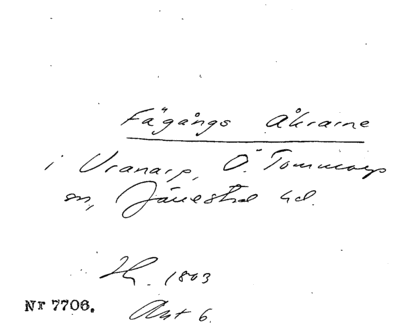 Fägångs Åkrarne
i Vranarp, Ö. Tommarp
sn, Järrestad hd.
1803
Nr 7706.
Akt 6.